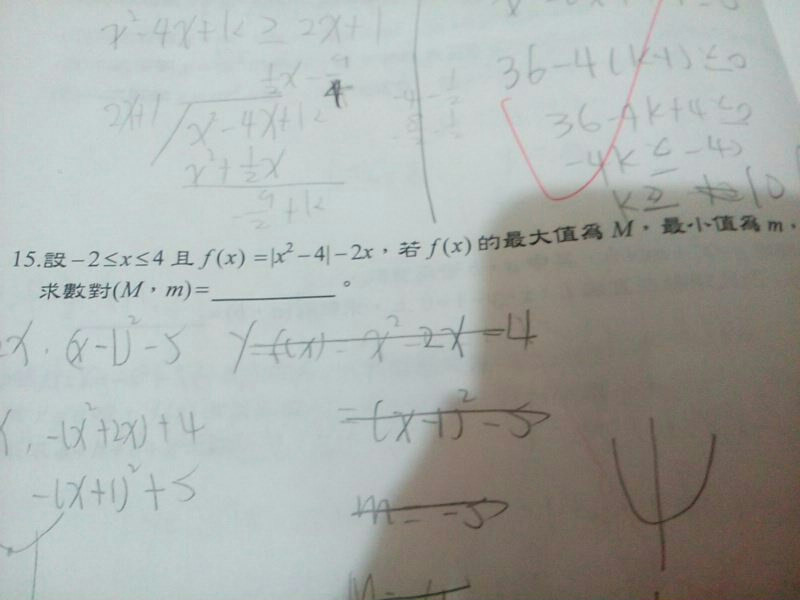 x²-4x+k ≥ 2x+1
½x - 9/4
2x+1 x²-4x+k
x²+½x
-9/2+k
36-4(k-1)≤0
36-4k+4≤0
-4k≤-40
k≥ 10
15.設-2≤x≤4且f(x)=|x²-4|-2x，若f(x)的最大值為M，最小值為m，
求數對(M，m)=________。
(x-1)²-5
y=f(x)=x²-2x-4
-(x²+2x)+4
=(x-1)²-5
-(x+1)²+5
m=-5